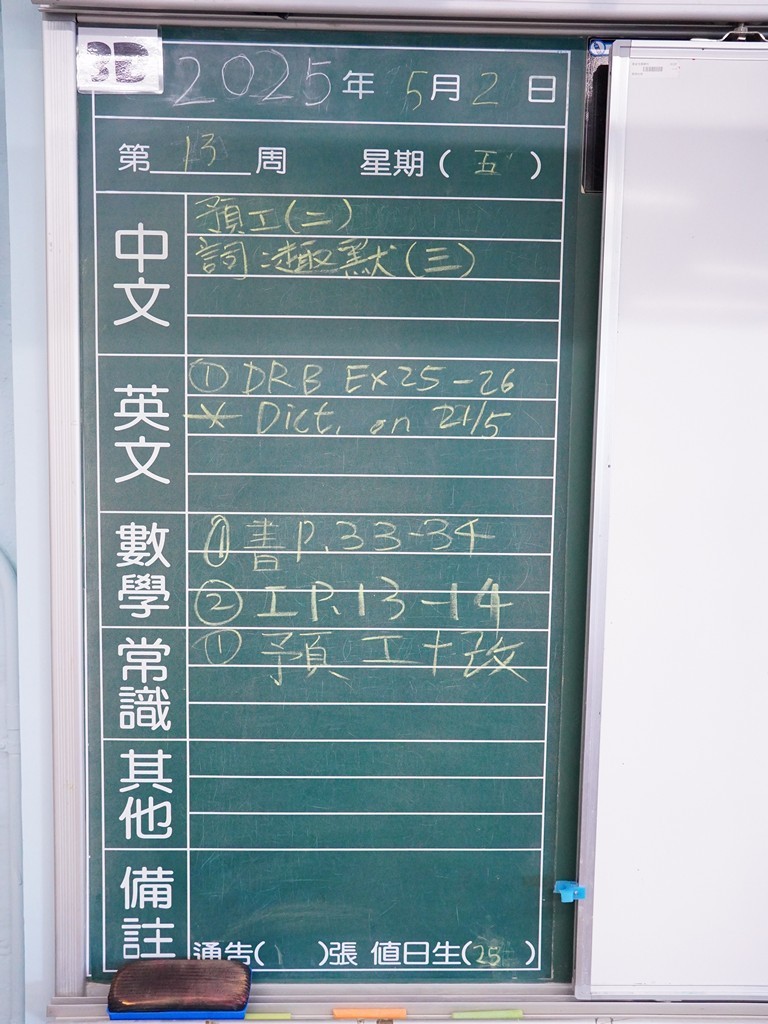 3D
2025年 5月2日
第13周 星期(五)
中文
預工(二)
詞:趣默(三)
英文
① DRB Ex 25-26
Dict. on 21/5
數學
① 書P.33-34
② 工P.13-14
常識
① 預工+改
其他
備註
通告( )張 值日生(25)